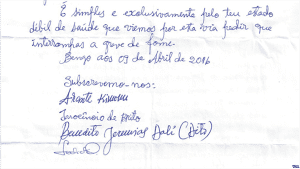 É simples e exclusivamente pelo teu estado
débil de saúde que viemos por esta via pedir que
interrompas a greve de fome.
Bengo aos 09 de Abril de 2016
Subscrevemo-nos:
Arante Kivuvu
Inocêncio de Brito
Benedito Jeremias Dali (Dito)